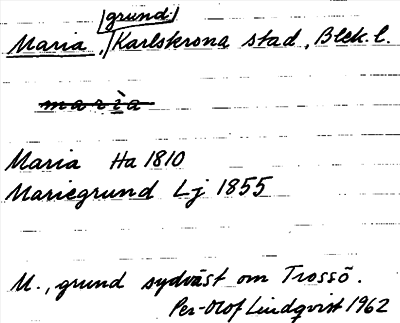 Maria, /grund/ Karlskrona stad, Blek. l.
maria
Maria Ha 1810
Mariegrund Lj 1855
M., grund sydväst om Trossö.
Per-Olof Lindqvist 1962